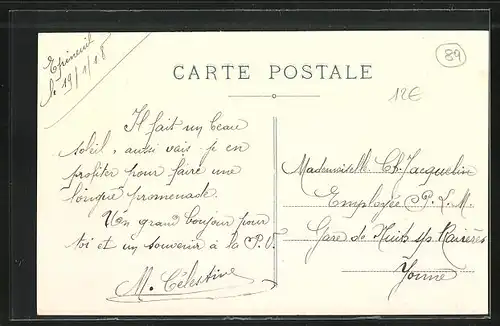 Epineuil
le 19/1/18
89
CARTE POSTALE
12€
Il fait un beau
soleil, aussi vais-je en
profiter pour faire une
longue promenade.
Un grand bonjour pour
toi et un souvenir à la P.V.
M. Célestine
Mademoiselle Ch. Jacquelin
Employée P. L. M.
Gare de Nuits s/s Ravières
Yonne